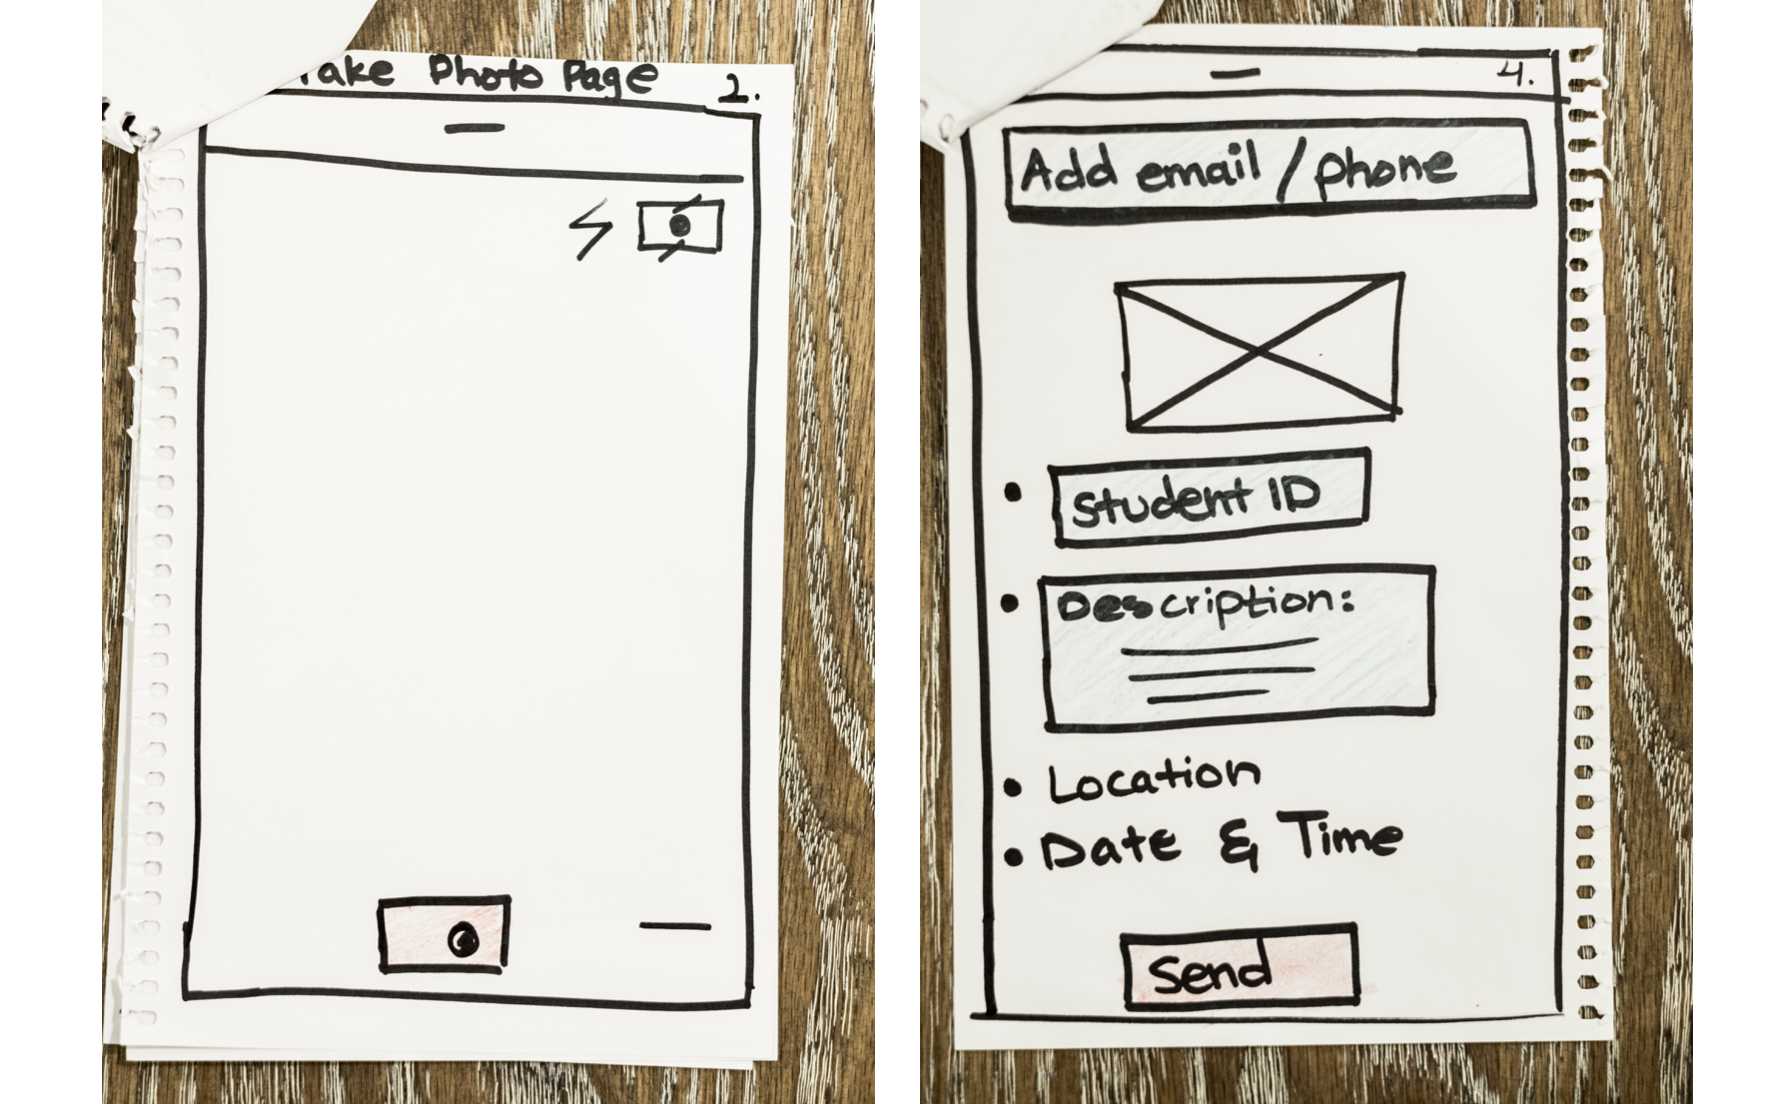 Take Photo Page
2.
4.
Add email / phone
Student ID
Description:
Location
Date & Time
Send